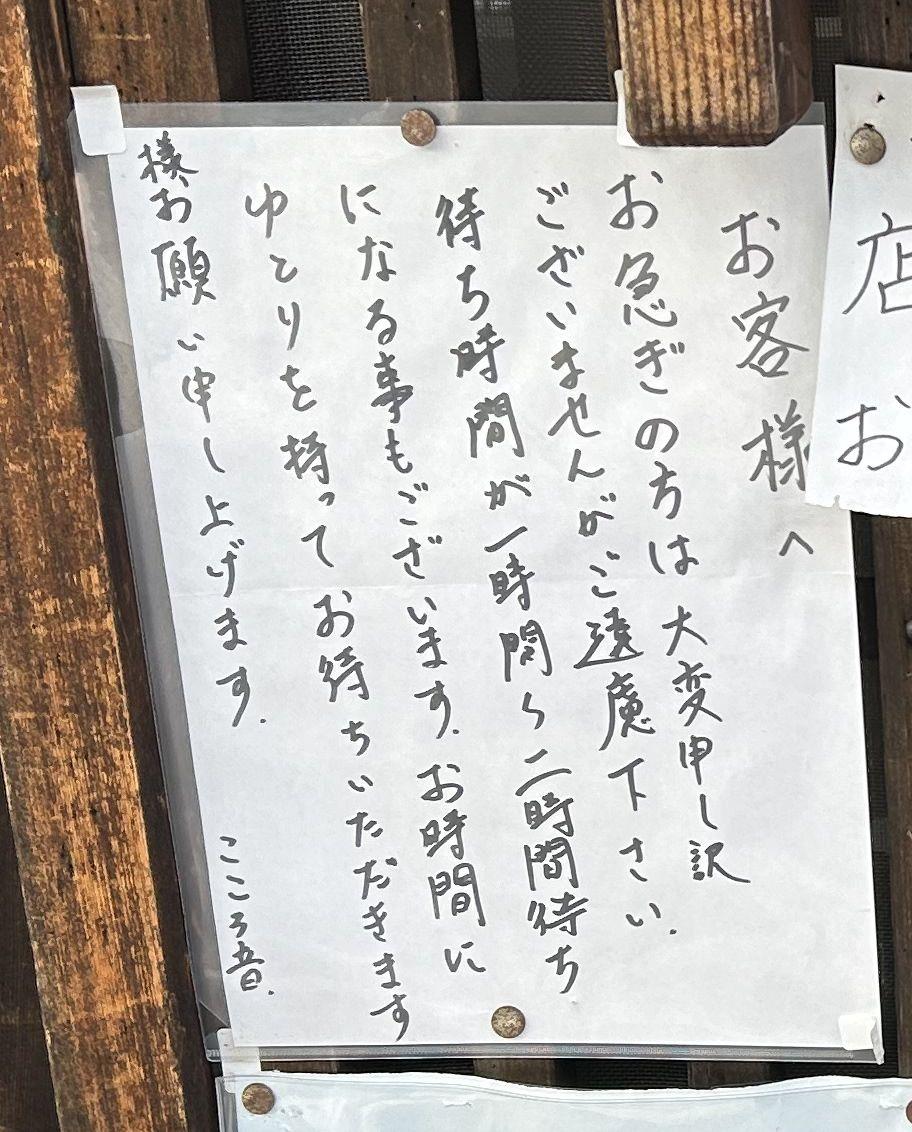 お客様へ
お急ぎの方は大変申し訳
ございませんがご遠慮下さい.
待ち時間が一時間〜二時間待ち
になる事もございます.お時間に
ゆとりを持ってお待ちいただきます
様お願い申し上げます.
こころ音.
店
お